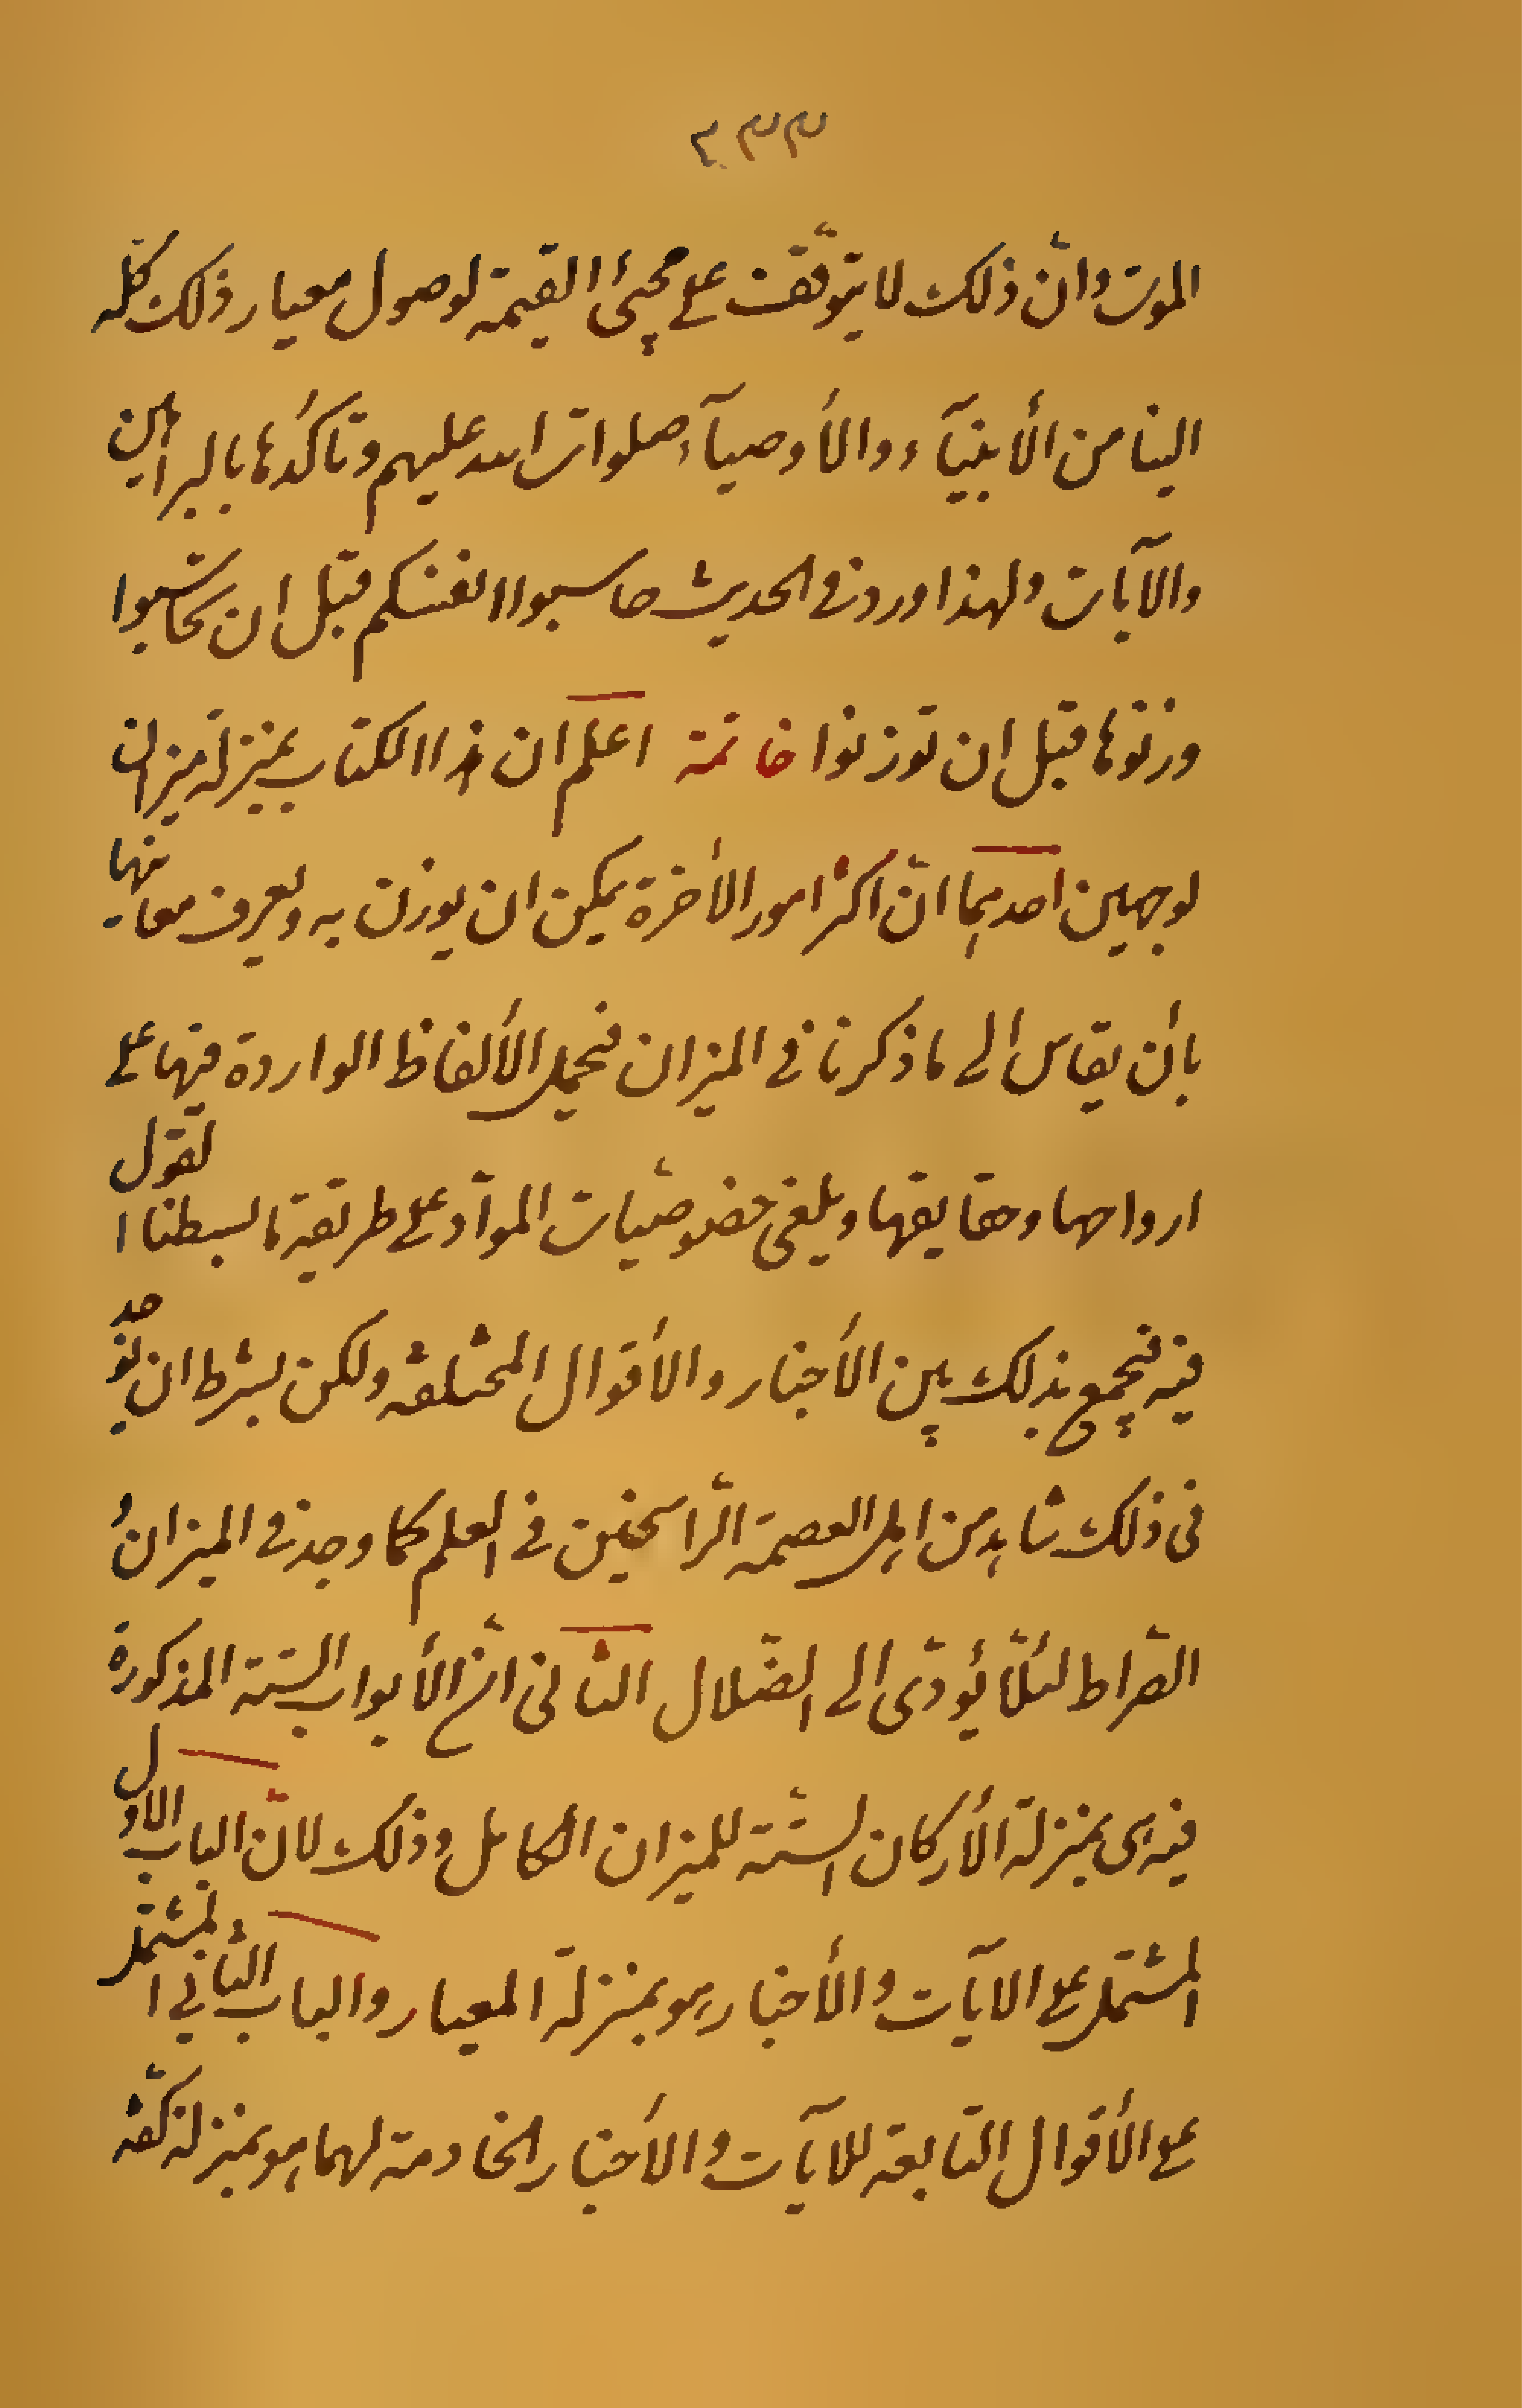 ٣٣٢
الموت وانّ ذلك لا يتوقّف على مجيئ القيمة لوصول معيار ذلك كلّه
الينا من الأنبيآء والأوصيآء صلوات الله عليهم وتأكّدها بالبراهين
والآيات ولهذا ورد في الحديث حاسبوا انفسكم قبل ان تحاسبوا
وزنوها قبل ان توزنوا خاتمة اعلم ان هذا الكتاب بمنزلة ميزان
لوجهين احديهما انّ اكثر امور الأخرة يمكن ان يوزن به ويعرف معانيها
بأن يقاس الى ما ذكرنا في الميزان فتحمل الألفاظ الواردة فيها على
ارواحها وحقايقها ويلغى خصوصيّات الموادّ على طريقة ما بسطنا القول
فيه فيجمع بذلك بين الأخبار والأقوال المختلفة ولكن بشرط ان يوجد
في ذلك شاهد من اهل العصمة الرّاسخين في العلم كما وجد في الميزان و
الصّراط لئلّا يؤدّى الى الضّلال الثاني انّ الأبواب الستّة المذكورة
فيه هى بمنزلة الأركان الستّة للميزان الكامل وذلك لانّ الباب الاول
المشتمل على الآيات والأخبار هو بمنزلة المعيار والباب الثاني المشتمل
على الأقوال التابعة للآيات والأخبار الخادمة لهما هو بمنزلة كفّة